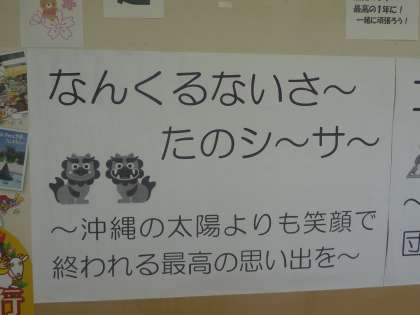 最高の1年に!
一緒に頑張ろう!
なんくるないさ~
たのシ~サ~
~沖縄の太陽よりも笑顔で
終われる最高の思い出を~
~
団
行